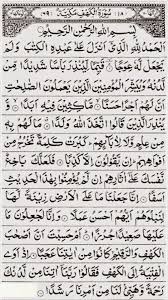 سُوْرَةُ الْكَهْفِ مَكِّيَّةٌ
بِسْمِ اللّٰهِ الرَّحْمٰنِ الرَّحِيْمِ
اَلْحَمْدُ لِلّٰهِ الَّذِيْٓ اَنْزَلَ عَلٰى عَبْدِهِ الْكِتٰبَ وَلَمْ
يَجْعَلْ لَّهٗ عِوَجًا قَيِّمًا لِّيُنْذِرَ بَاْسًا شَدِيْدًا مِّنْ
لَّدُنْهُ وَيُبَشِّرَ الْمُؤْمِنِيْنَ الَّذِيْنَ يَعْمَلُوْنَ الصّٰلِحٰتِ
اَنَّ لَهُمْ اَجْرًا حَسَنًا مَّاكِثِيْنَ فِيْهِ اَبَدًا وَّيُنْذِرَ
الَّذِيْنَ قَالُوا اتَّخَذَ اللّٰهُ وَلَدًا مَا لَهُمْ بِهٖ مِنْ عِلْمٍ وَّلَا
لِاٰبَآئِهِمْ كَبُرَتْ كَلِمَةً تَخْرُجُ مِنْ اَفْوَاهِهِمْ اِنْ يَّقُوْلُوْنَ
اِلَّا كَذِبًا فَلَعَلَّكَ بَاخِعٌ نَّفْسَكَ عَلٰٓى اٰثَارِهِمْ اِنْ لَّمْ يُؤْمِنُوْا
بِهٰذَا الْحَدِيْثِ اَسَفًا اِنَّا جَعَلْنَا مَا عَلَى الْاَرْضِ زِيْنَةً
لَّهَا لِنَبْلُوَهُمْ اَيُّهُمْ اَحْسَنُ عَمَلًا وَاِنَّا لَجٰعِلُوْنَ مَا
عَلَيْهَا صَعِيْدًا جُرُزًا اَمْ حَسِبْتَ اَنَّ اَصْحٰبَ
الْكَهْفِ وَالرَّقِيْمِ كَانُوْا مِنْ اٰيٰتِنَا عَجَبًا اِذْ اَوَى الْفِتْيَةُ
اِلَى الْكَهْفِ فَقَالُوْا رَبَّنَآ اٰتِنَا مِنْ لَّدُنْكَ
رَحْمَةً وَّهَيِّئْ لَنَا مِنْ اَمْرِنَا رَشَدًا